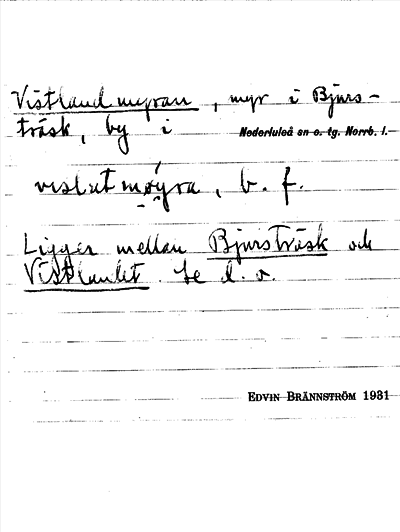 Vistlandmyran, myr i Bjurs-
träsk, by i Nederluleå sn o. tg. Norrb. l.
Ligger mellan Bjursträsk och
Vistlandet. Se d. o.
EDVIN BRÄNNSTRÖM 1931